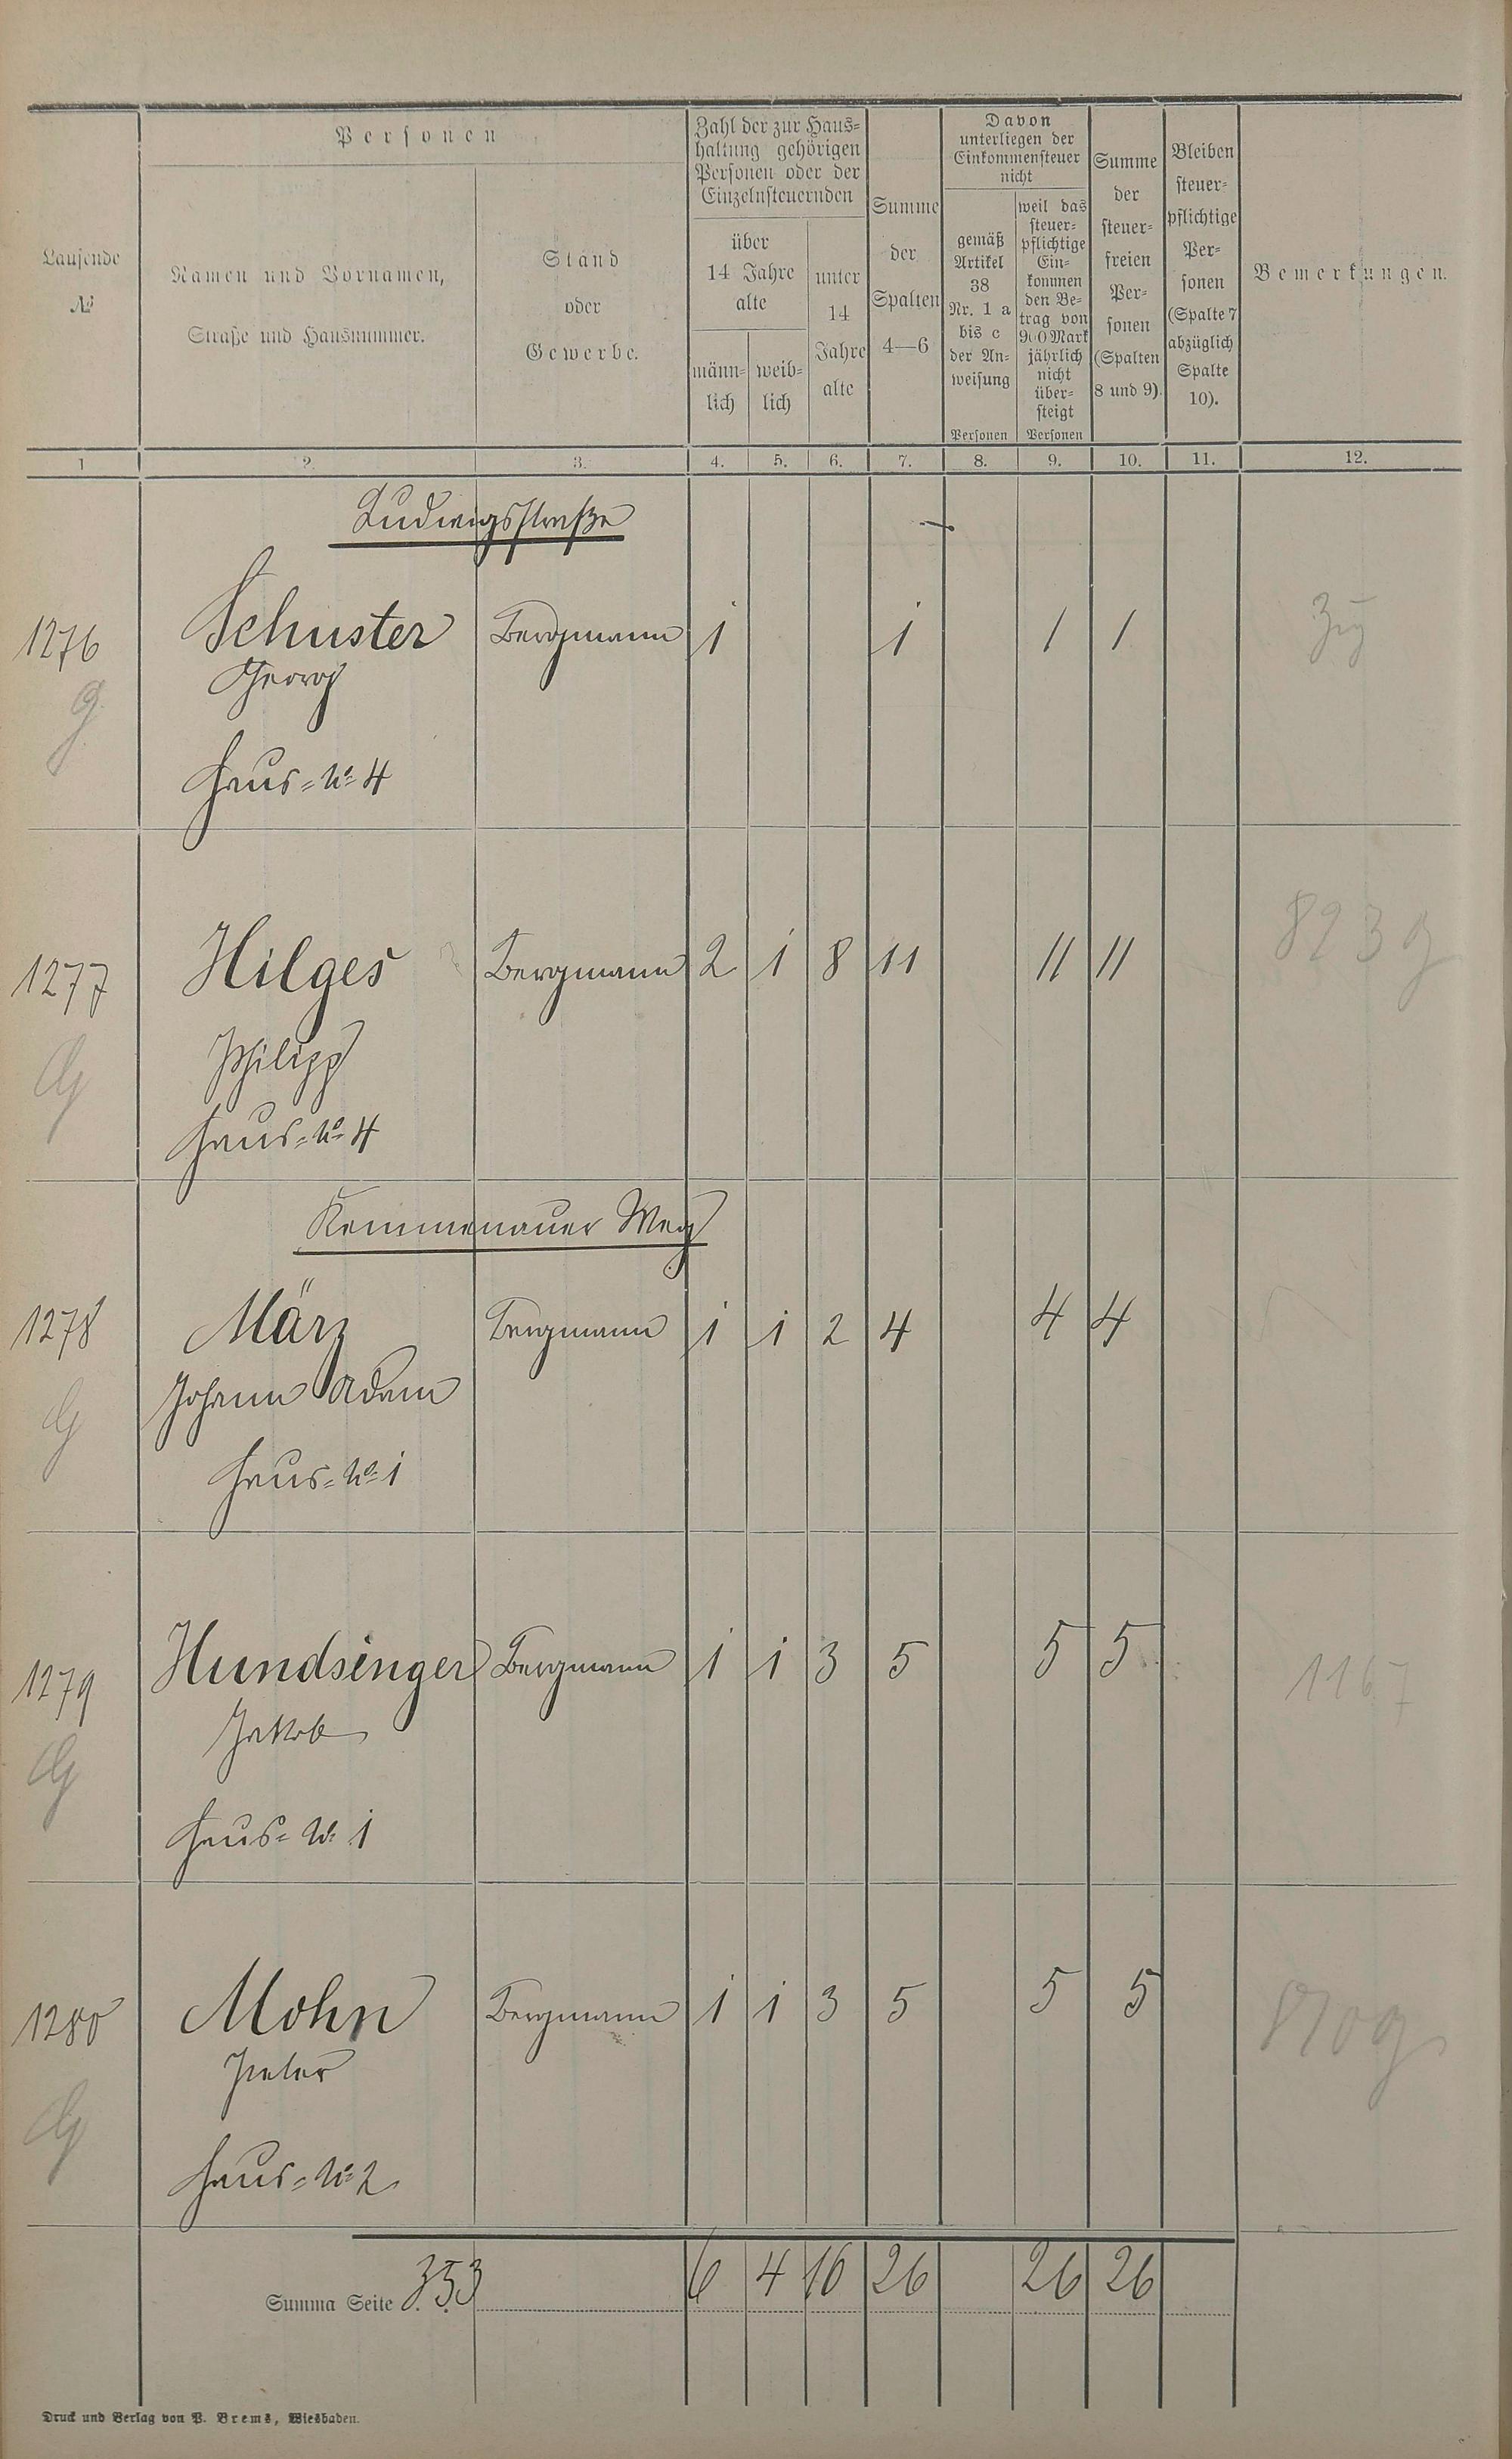 Personen
Laufende
№
Namen und Vornamen,
Straße und Hausnummer.
Stand
oder
Gewerbe.
Zahl der zur Haus-
haltung gehörigen
Personen oder der
Einzelnsteuernden
über
14 Jahre
alte
männ-
lich
weib-
lich
unter
14
Jahre
alte
Summe
der
Spalten
4—6
Davon
unterliegen der
Einkommensteuer
nicht
gemäß
Artikel
38
Nr. 1 a
bis c
der An-
weisung
Personen
weil das
steuer-
pflichtige
Ein-
kommen
den Be-
trag von
900 Mark
jährlich
nicht
über-
steigt
Personen
Summe
der
steuer-
freien
Per-
sonen
(Spalten
8 und 9).
Bleiben
steuer-
pflichtige
Per-
sonen
(Spalte 7
abzüglich
Spalte
10).
Bemerkungen.
1 2. 3. 4. 5. 6. 7. 8. 9. 10. 11. 12.
Ludwigsstraße
1276 Schuster Bergmann 1 1 1 1
Georg
Haus-No 4
1277 Hilges Bergmann 2 1 8 11 11 11
Philipp
Haus-No 4
Kemmenauer Weg
1278 März Bergmann 1 1 2 4 4 4
Johann Adam
Haus-No 1
1279 Hundsinger Bergmann 1 1 3 5 5 5 1167
Jakob
Haus-No 1
1280 Mohn Bergmann 1 1 3 5 5 5
Peter
Haus-No 2
Summa Seite 353 6 4 16 26 26 26
Druck und Verlag von P. Brems, Wiesbaden.